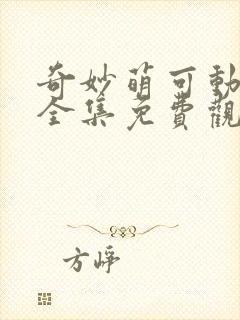 奇妙萌可動
全集免費觀
方崢